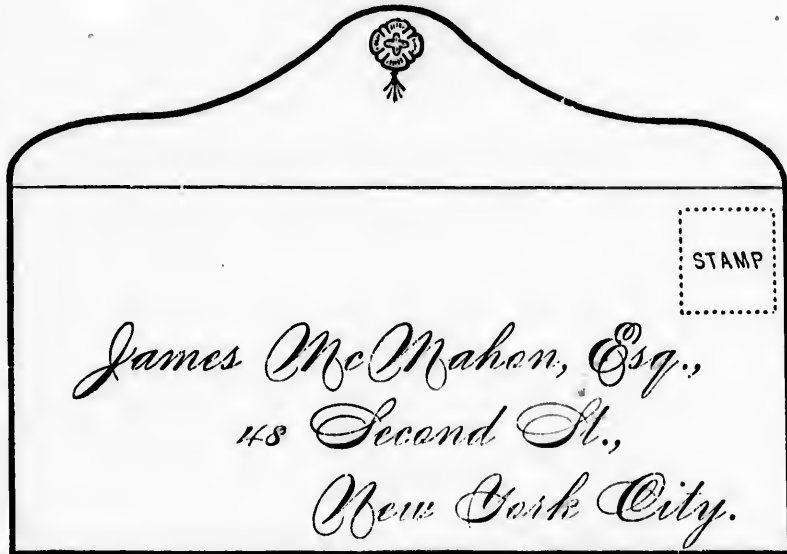 STAMP
James McMahon, Esq.,
48 Second St.,
New York City.